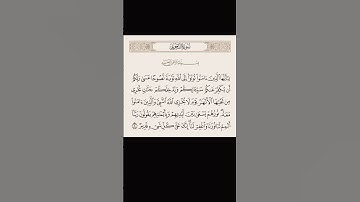 سورة التحريم
يا أيها الذين ءامنوا توبوا إلى الله توبة نصوحا عسى ربكم
أن يكفر عنكم سيئاتكم ويدخلكم جنات تجري
من تحتها الأنهار يوم لا يخزي الله النبي والذين ءامنوا
معه نورهم يسعى بين أيديهم وبأيمانهم يقولون ربنا
أتمم لنا نورنا واغفر لنا إنك على كل شيء قدير